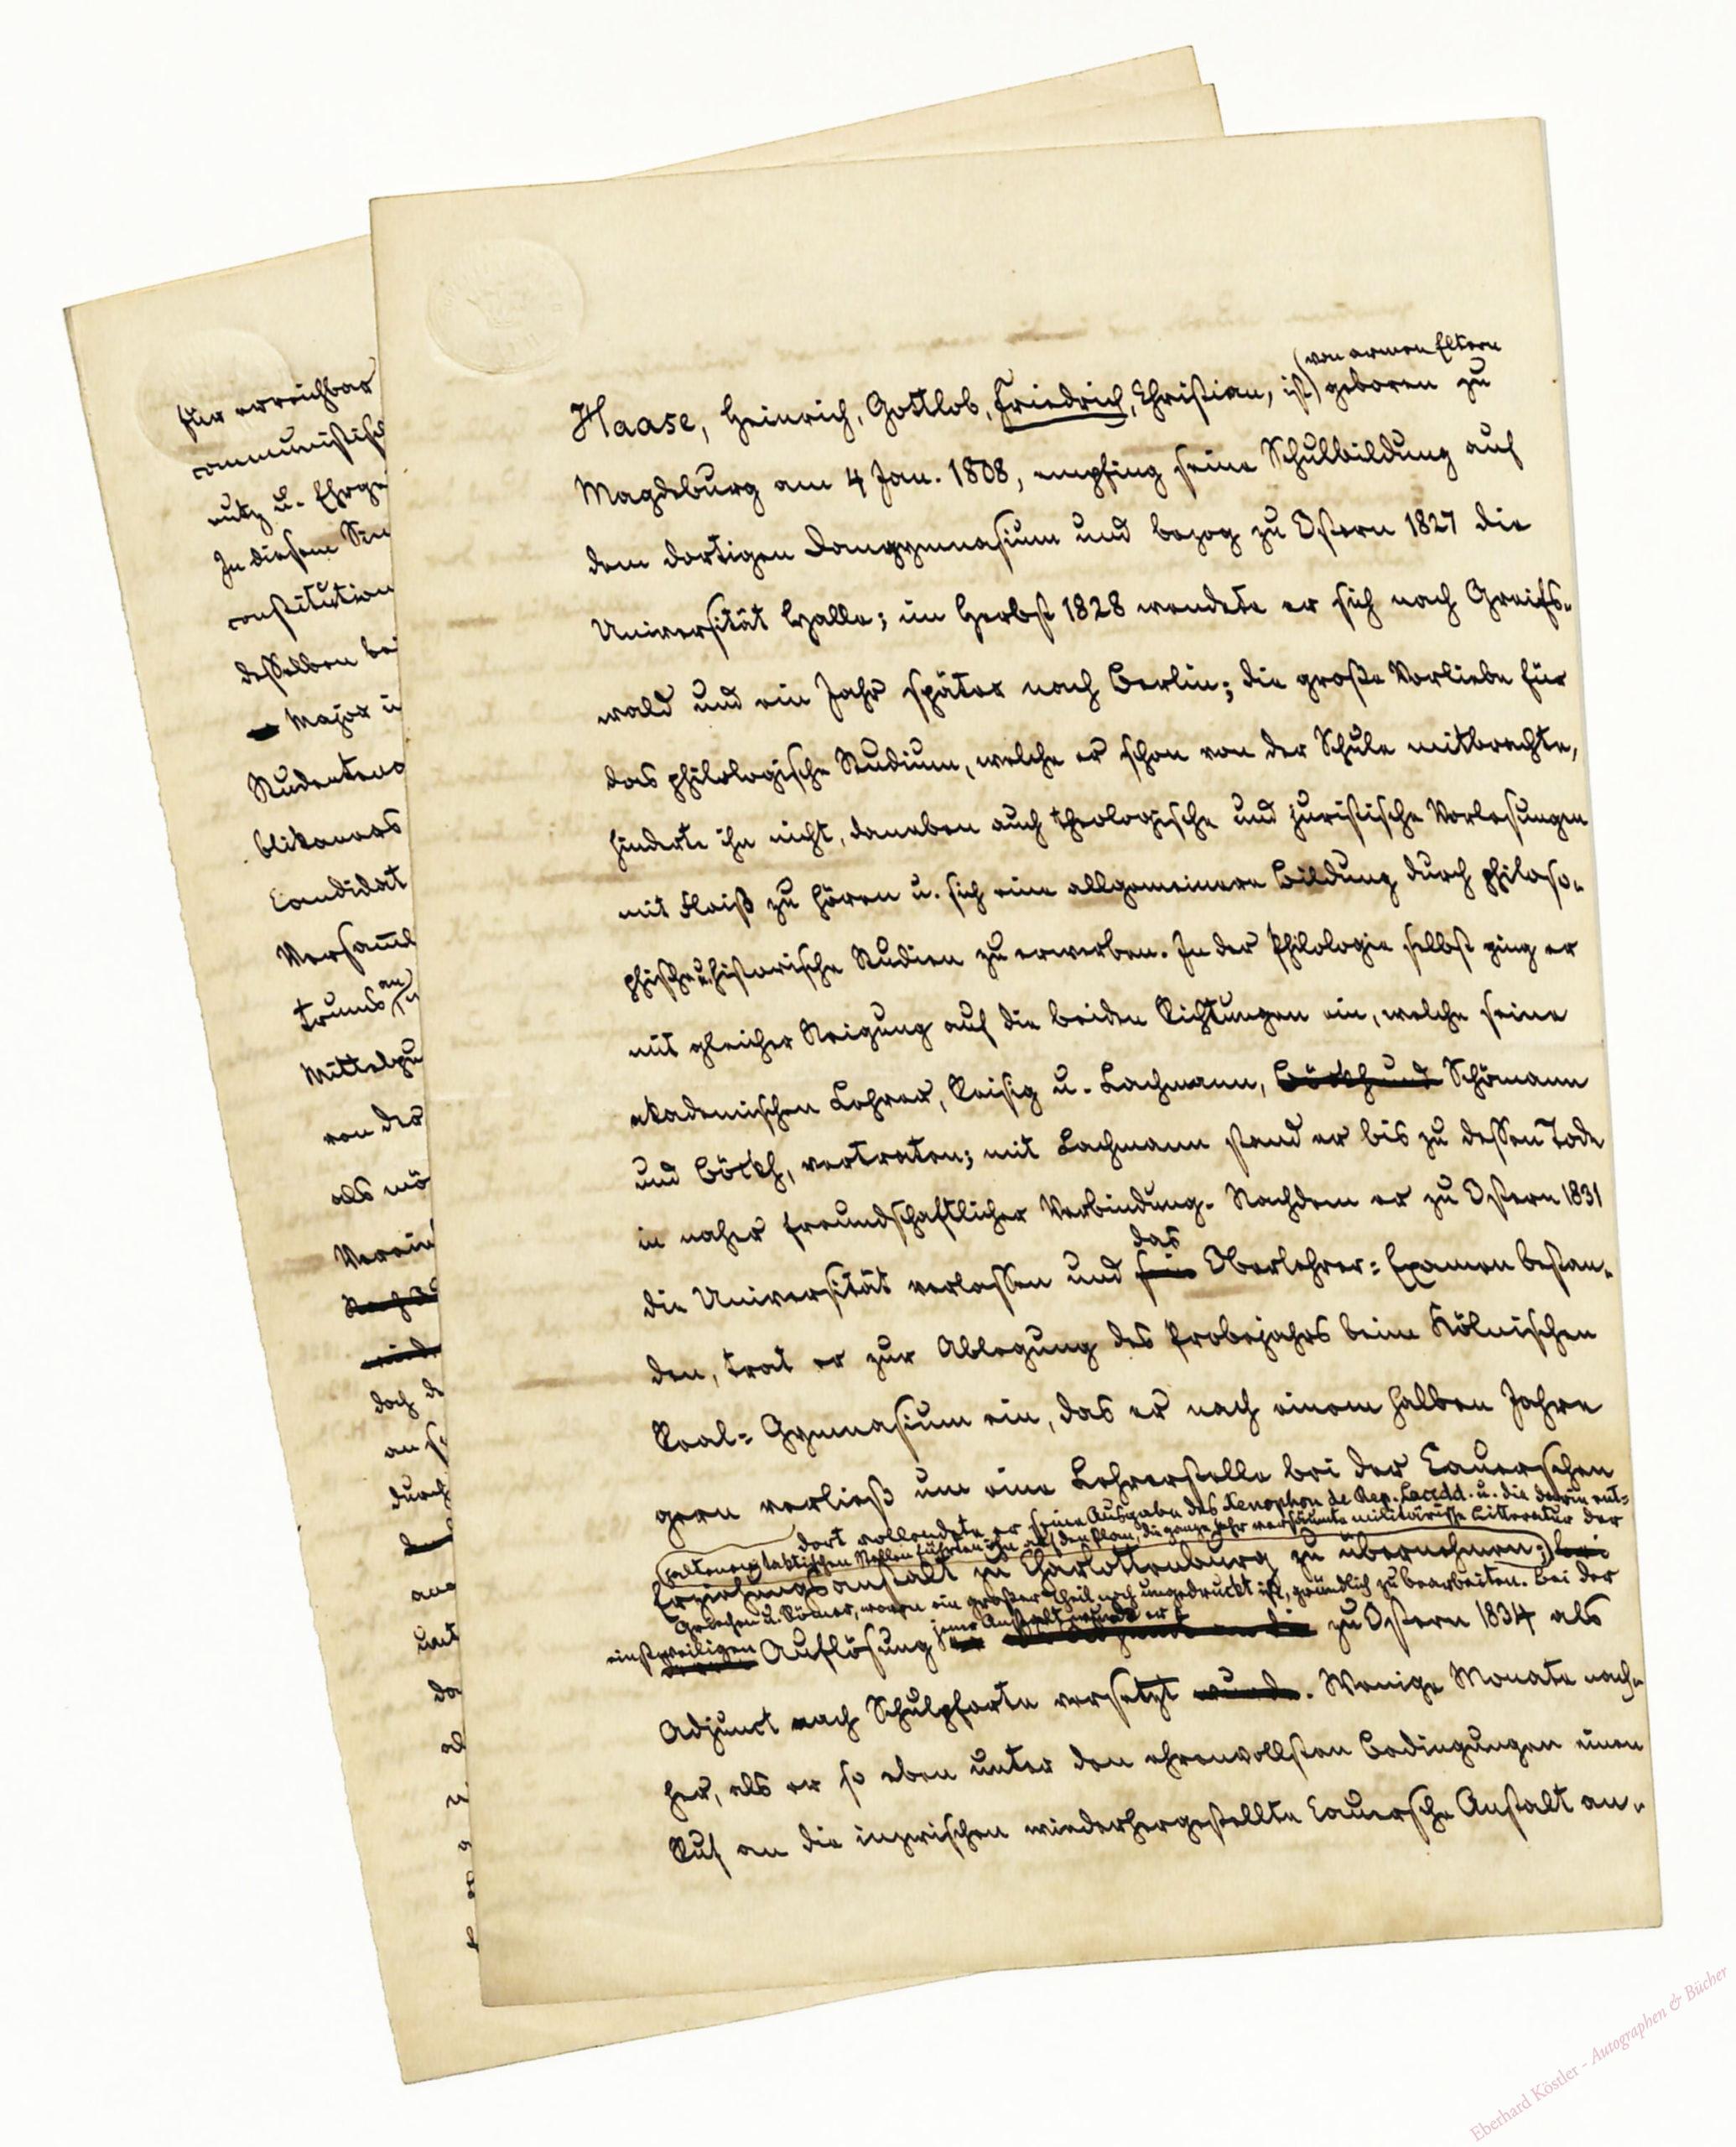 (von armen Eltern
Haase, Heinrich, Gottlob, Friedrich, Christian, ist) geboren zu
Magdeburg am 4 Jan. 1808, empfing seine Schulbildung auf
dem dortigen Domgymnasium und bezog zu Ostern 1827 die
Universität Halle; im Herbst 1828 wendete er sich nach Greifs-
wald und ein Jahr später nach Berlin; die große Vorliebe für
das philologische Studium, welche er schon von der Schule mitbrachte,
hinderte ihn nicht, daneben auch theologische und juristische Vorlesungen
mit Fleiß zu hören u. sich eine allgemeinere Bildung durch philoso-
phische u. historische Studien zu erwerben. In der Philologie selbst ging er
mit gleicher Neigung auf die beiden Richtungen ein, welche seine
akademischen Lehrer, Reisig u. Lachmann, Böckh und Schömann
und Böckh, vertraten; mit Lachmann stand er bis zu dessen Tode
in naher freundschaftlicher Verbindung. Nachdem er zu Ostern 1831
das
die Universität verlassen und sein Oberlehrer-Examen bestan-
den, trat er zur Ablegung des Probejahrs beim Kölnischen
Real-Gymnasium ein, das er nach einem halben Jahre
gern verließ um eine Lehrerstelle bei der Cauerschen
dort vollendete er seine Ausgabe des Xenophon de Rep. Lacedd. u. die darin ent-
haltenen taktischen Stellen führten ihn auf den Plan, die ganze sehr versäumte militärische Litteratur der
Erziehungsanstalt zu Charlottenburg zu übernehmen; bei
Griechen u. Römer, wovon ein großer Theil noch ungedruckt ist, gründlich zu bearbeiten. Bei der
jener Anstalt wurde er
einstweiligen Auflösung zu Ostern 1834 als
Adjunct nach Schulpforta versetzt wurde. Wenige Monate nach-
her, als er so eben unter den ehrenvollsten Bedingungen einen
Ruf an die inzwischen wiederhergestellte Cauersche Anstalt an-
für erreichbar
communistisch
nutz u. Ehrge
In diesem Sin
constitution
desselben bei
Major i
Studenten
blikaners
Candidat
Versaml
an
trums
Mittelpu
von der
als mö
Verein
doch de
an
durch
aus
und
da
Eberhard Köstler - Autographen & Bücher